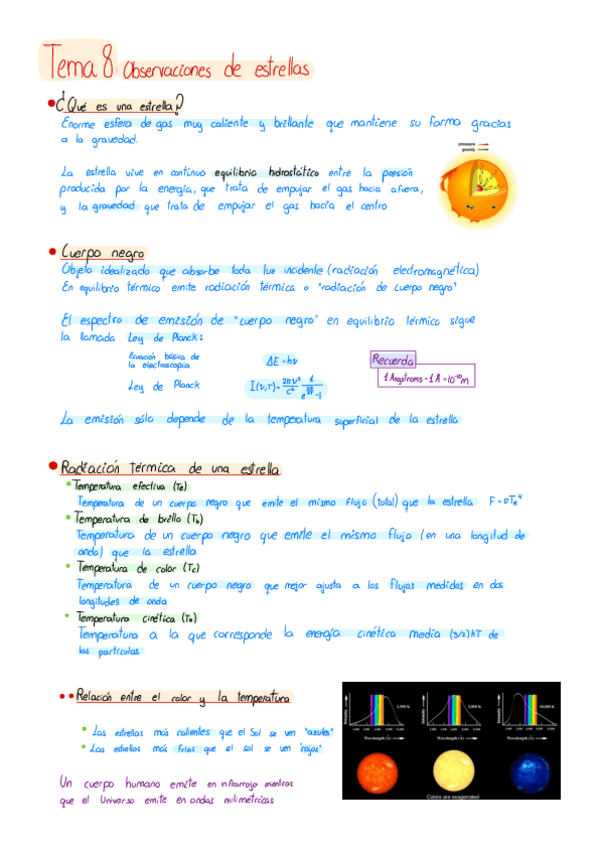 Tema 8 Observaciones de estrellas
• ¿Qué es una estrella?
Enorme esfera de gas muy caliente y brillante que mantiene su forma gracias
a la gravedad.
pressure
gravity
La estrella vive en continuo equilibrio hidrostático entre la presión
producida por la energía, que trata de empujar el gas hacia afuera,
y la gravedad que trata de empujar el gas hacia el centro
• Cuerpo negro
Objeto idealizado que absorbe toda luz incidente (radiación electromagnética)
En equilibrio térmico emite radiación térmica o "radiación de cuerpo negro"
El espectro de emisión de "cuerpo negro" en equilibrio térmico sigue
la llamada Ley de Planck:
Ecuación básica de
la electroscopia
ΔE = hν
Recuerda
1 Angstroms = 1 Å = 10⁻¹⁰ m
Ley de Planck
La emisión sólo depende de la temperatura superficial de la estrella
• Radiación térmica de una estrella
• Temperatura efectiva (Te)
Temperatura de un cuerpo negro que emite el mismo flujo (total) que la estrella F = σTe⁴
• Temperatura de brillo (Tb)
Temperatura de un cuerpo negro que emite el mismo flujo (en una longitud de
onda) que la estrella
• Temperatura de color (Tc)
Temperatura de un cuerpo negro que mejor ajusta a los flujos medidos en dos
longitudes de onda
• Temperatura cinética (Tk)
Temperatura a la que corresponde la energía cinética media (3/2)kT de
las partículas
•• Relación entre el color y la temperatura
• Las estrellas más calientes que el Sol se ven "azules"
• Las estrellas más frías que el sol se ven "rojas"
Un cuerpo humano emite en infrarrojo mientras
que el Universo emite en ondas milimétricas
Intensity
Wavelength (Å)
Intensity
Wavelength (Å)
Intensity
10,000 K
Wavelength (Å)
Colors are exaggerated